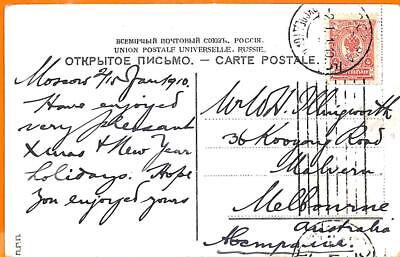 ВСЕМІРНЫЙ ПОЧТОВЫЙ СОЮЗЪ. РОССІЯ.
UNION POSTALE UNIVERSELLE. RUSSIE.
ОТКРЫТОЕ ПИСЬМО. — CARTE POSTALE.
Moscow 2/15 Jan 1910.
Have enjoyed
very pleasant
Xmas & New Year
holidays. Hope
you enjoyed yours
Mr W. H. Illingworth
36 Kooyong Road
Malvern
Melbourne
Australia
Австралія.